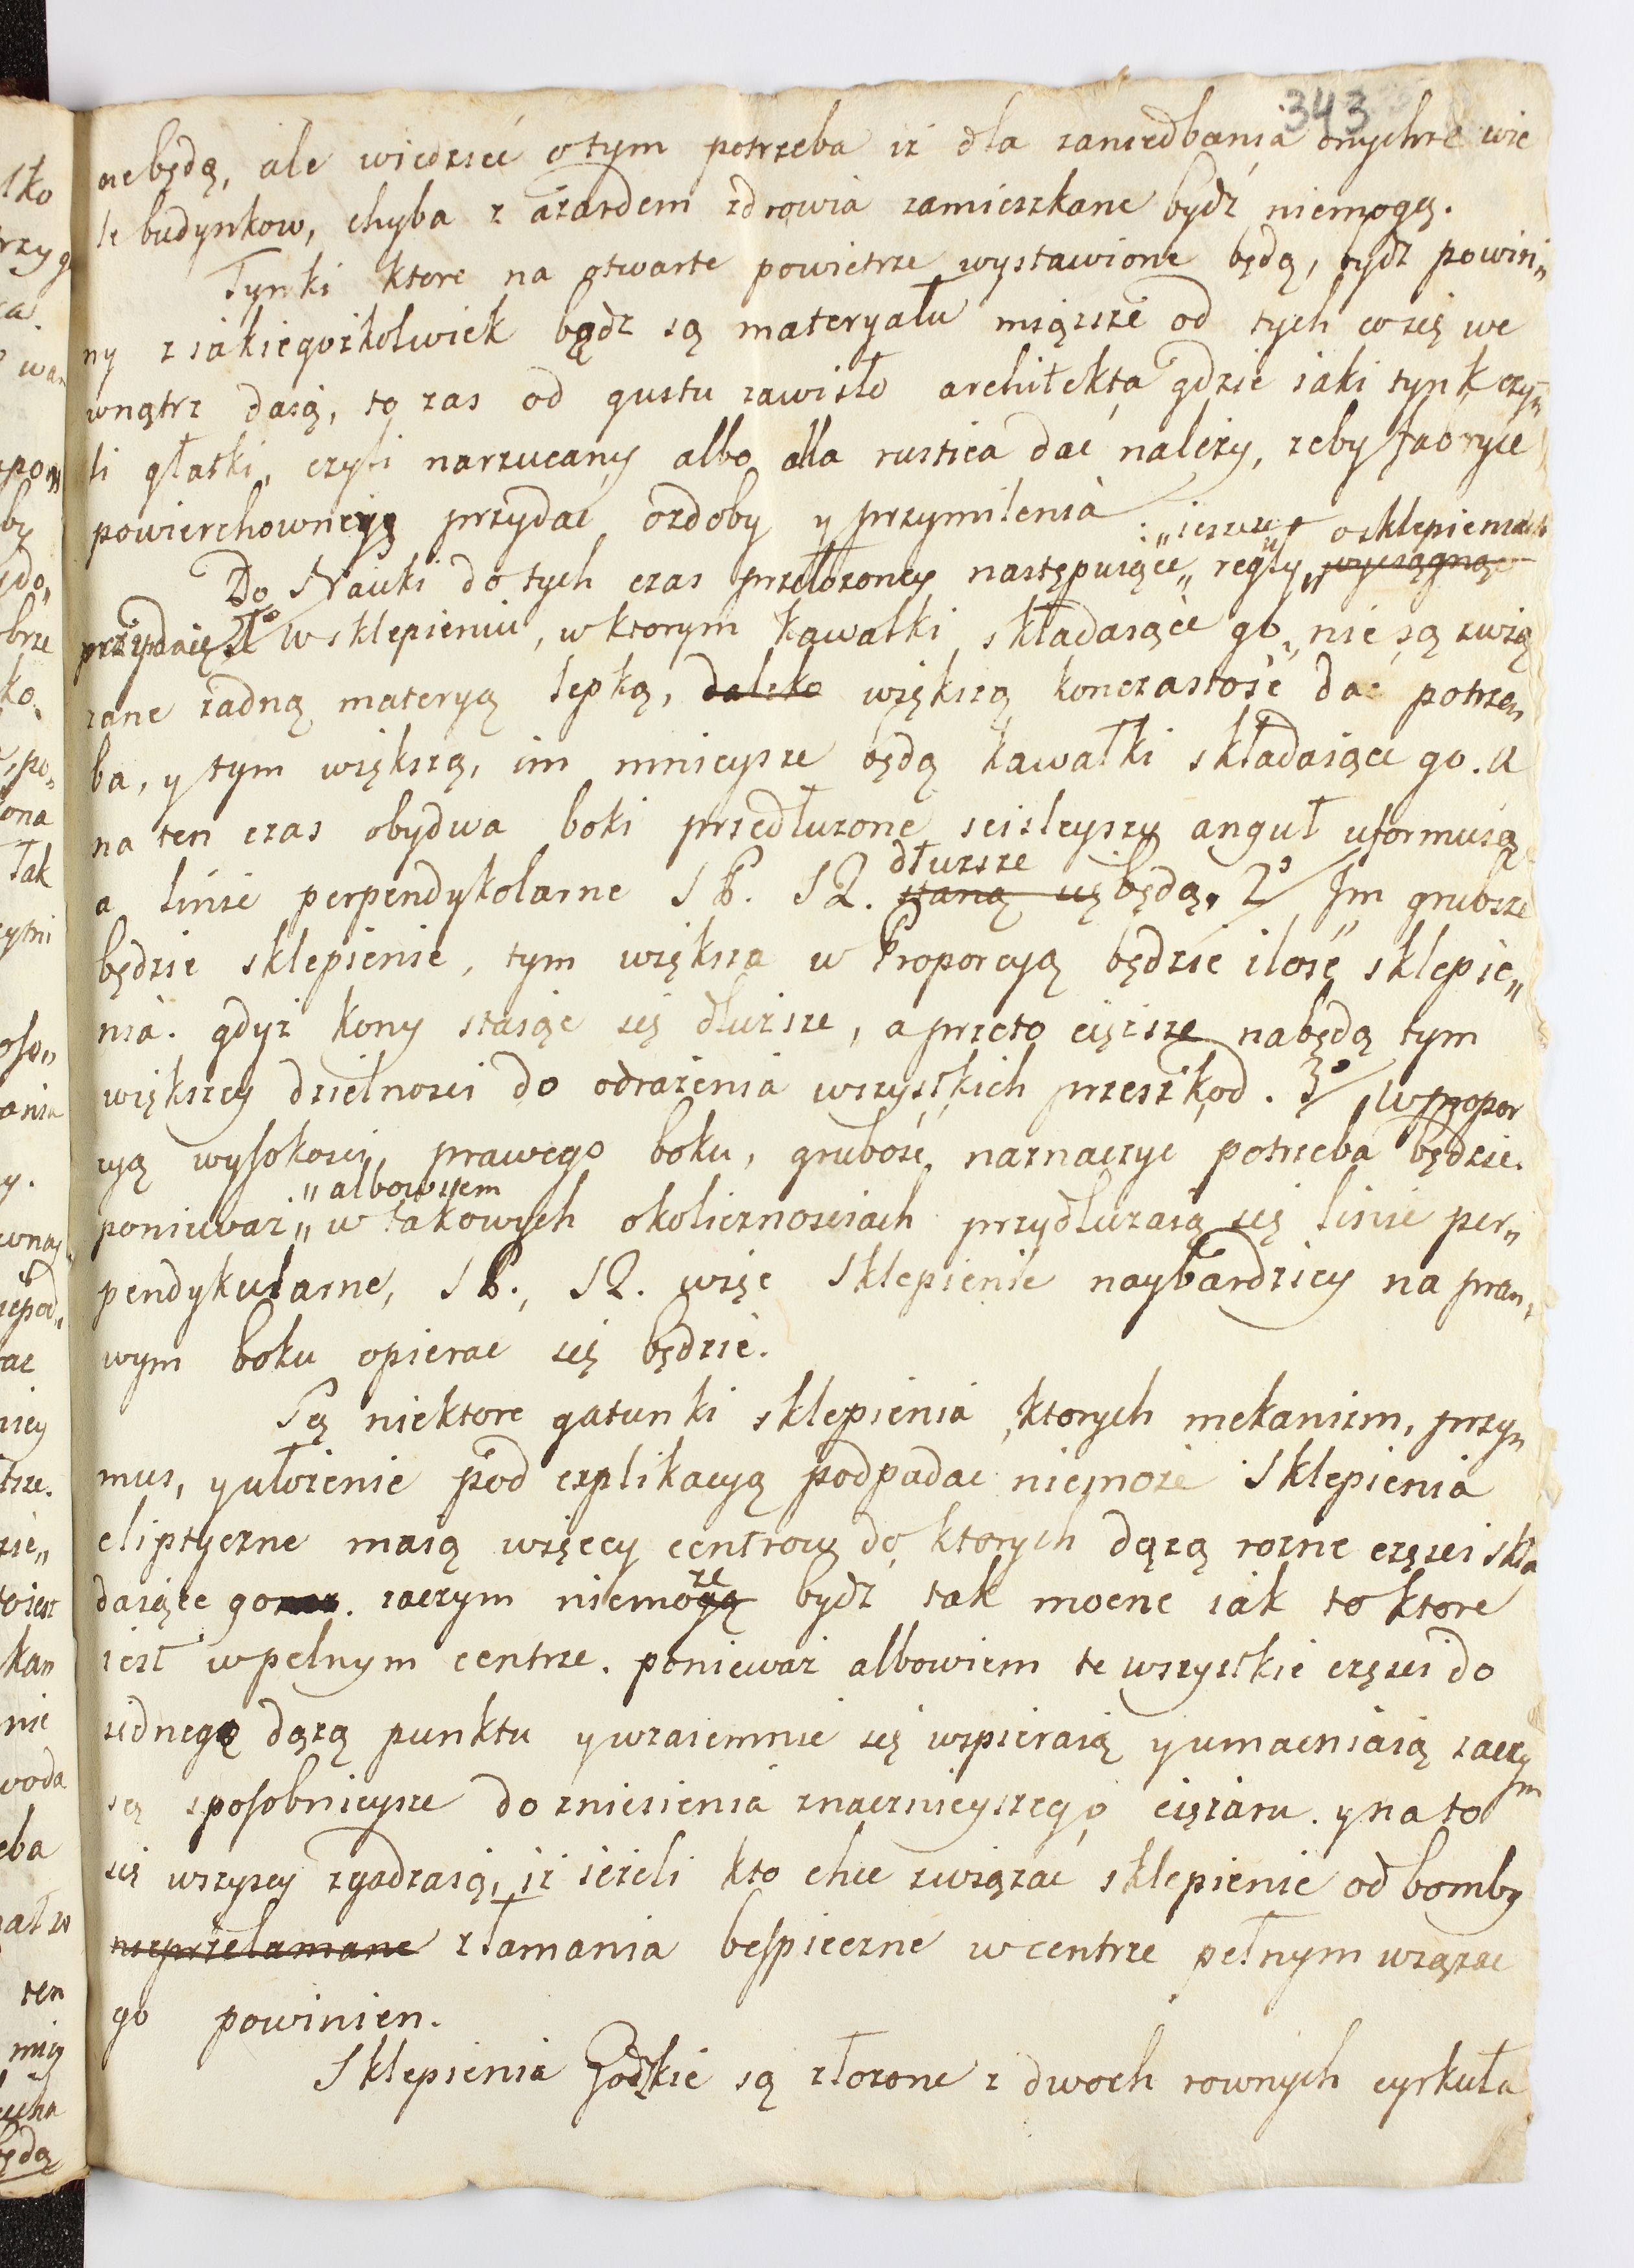 343
nebędą, ale wiedzieć o tym potrzeba iż dla zaniedbania onychże wie
le budynkow, chyba z azardem zdrowia zamieszkane bydź niemogą.
Tynki ktore na otwarte powietrze wystawione będą, bydź powin„
ny z iakiegożkolwiek bądz są materyału miązsze od tych co się we
wnątrz daią, to zas od gustu zawisło architekta gdzie iaki tynk czy„
li głatki, czyli narzucany albo alla rustica dać należy, żeby fabryce
powierchowney przydac ozdoby y przymilenia
„ieszcze o sklepieniach
Do Nauki do tych czas przełozoney następuiące„ reguły„ wyciągnąć
przydaię 1° W sklepieniu, w ktorym kawałki składaiące go, nie są zwią
zane żadną materyą lepką, daleko większą kończastość dać potrze„
ba, y tym większą, im mnieysze będą kawałki składaiące go. a
na ten czas obydwa boki przedłuzone scisleyszy anguł uformuią
dłuzsze
a linie perpendykolarne S P. S Q. staną się będą. 2° Jm grubsze
będzie sklepienie, tym większa w Proporcyą będzie ilość sklepie„
nia. gdyż kony staiąc się dłuższe, a przeto cięższe nabędą tym
większey dzielnosci do odrażenia wszystkich przeszkod. 3° W propor
cyą wysokosci prawego boku, grubość naznaczyć potrzeba będzie.
„albowiem
poniewaz„ w takowych okolicznosciach przydłużaią się linie per„
pendykularne, S P., S Q. więc Sklepienie naybardziey na pra„
wym boku opierac się będzie.
Są niektore gatunki sklepienia ktorych mekanizm, przy„
mus, y ułożenie pod explikacyą podpadac niemoże. Sklepienia
eliptyczne maią więcey centrow do ktorych dążą rozne częsci skła
że
daiące go. zaczym niemogą bydź tak mocne iak to ktore
iest w pełnym centrze. ponieważ albowiem te wszystkie częsci do
iednego dążą punktu y wzaiemnie się wspieraią y umacniaią zaczym
są sposobnieysze do zniesienia znacznieyszego ciężaru. y na to
się wszyscy zgadzaią, iż ieżeli kto chce związać sklepienie od bomby
nieprzełamane złamania bespieczne w centrze pełnym wiązac
go powinien.
Sklepienia Godzkie są złozone z dwoch rownych cyrkuła